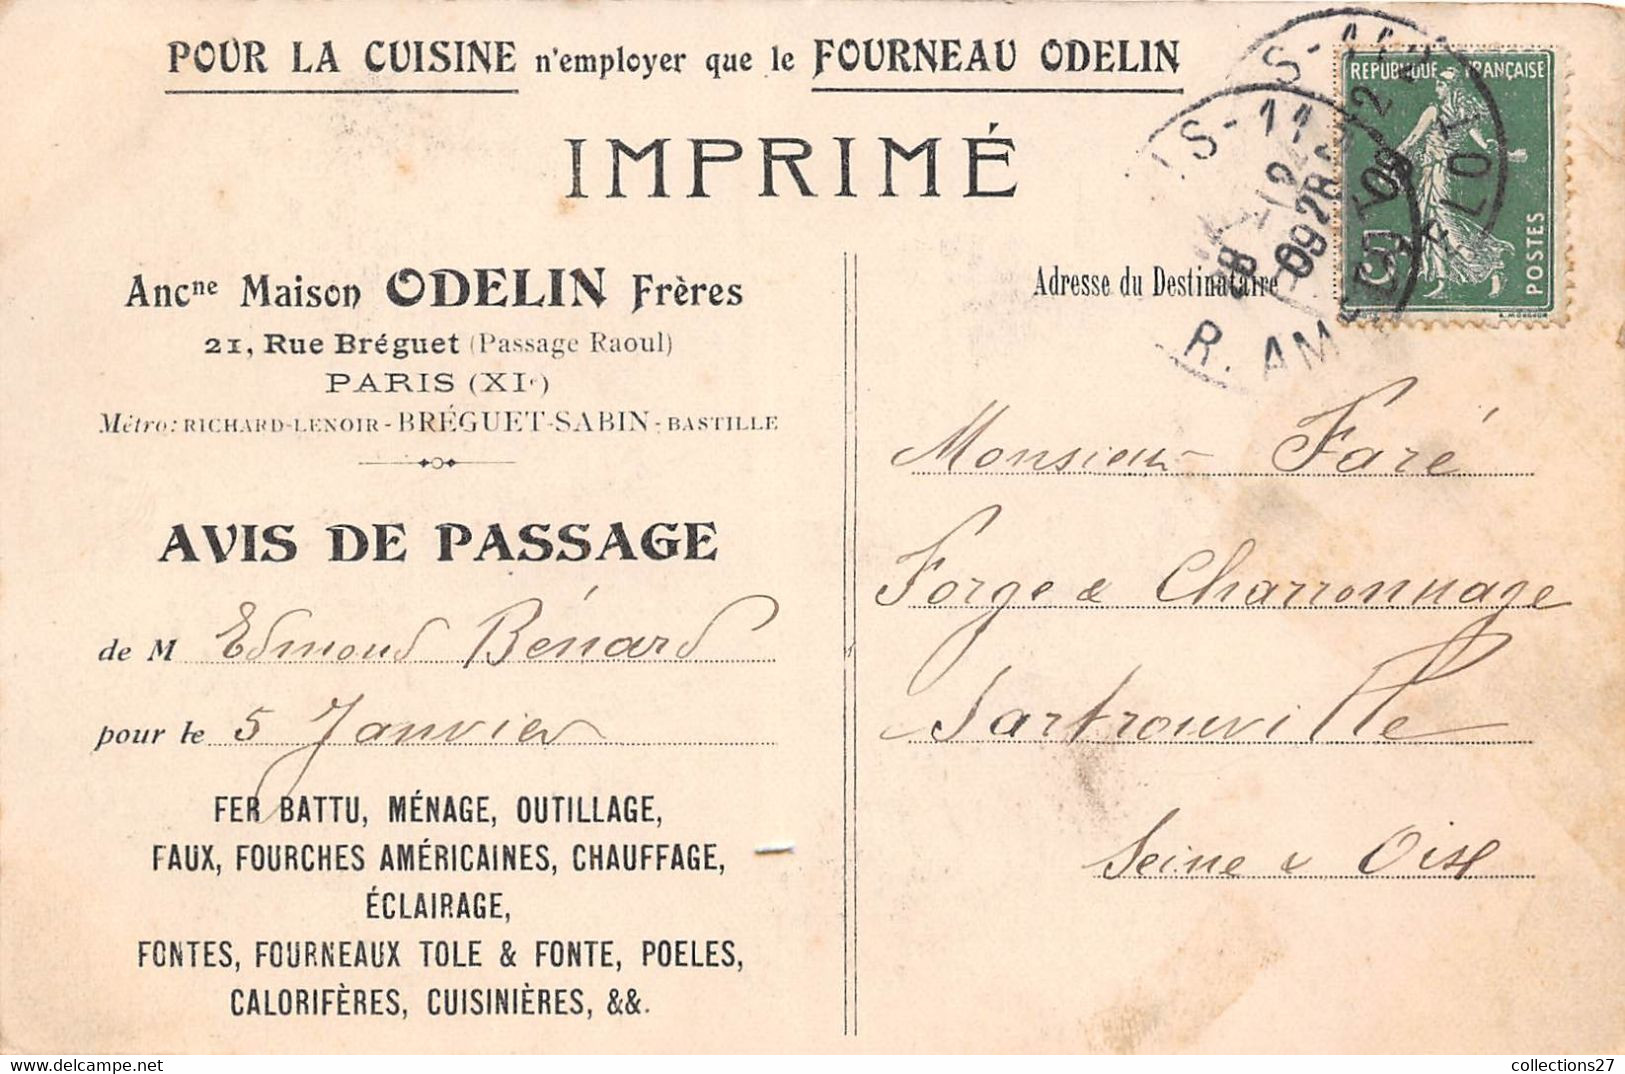 POUR LA CUISINE n'employer que le FOURNEAU ODELIN
IMPRIMÉ
REPUBLIQUE FRANÇAISE
POSTES
S-11
R. AM
09
28
Ancne Maison ODELIN Frères
21, Rue Bréguet (Passage Raoul)
PARIS (XIe)
Métro: RICHARD-LENOIR - BRÉGUET-SABIN - BASTILLE
AVIS DE PASSAGE
de M Edmond Bénard
pour le 5 Janvier
FER BATTU, MÉNAGE, OUTILLAGE,
FAUX, FOURCHES AMÉRICAINES, CHAUFFAGE,
ÉCLAIRAGE,
FONTES, FOURNEAUX TOLE & FONTE, POELES,
CALORIFÈRES, CUISINIÈRES, &&.
Adresse du Destinataire
Monsieur Faré
Forge & Charronnage
Sartrouville
Seine & Oise
collections27